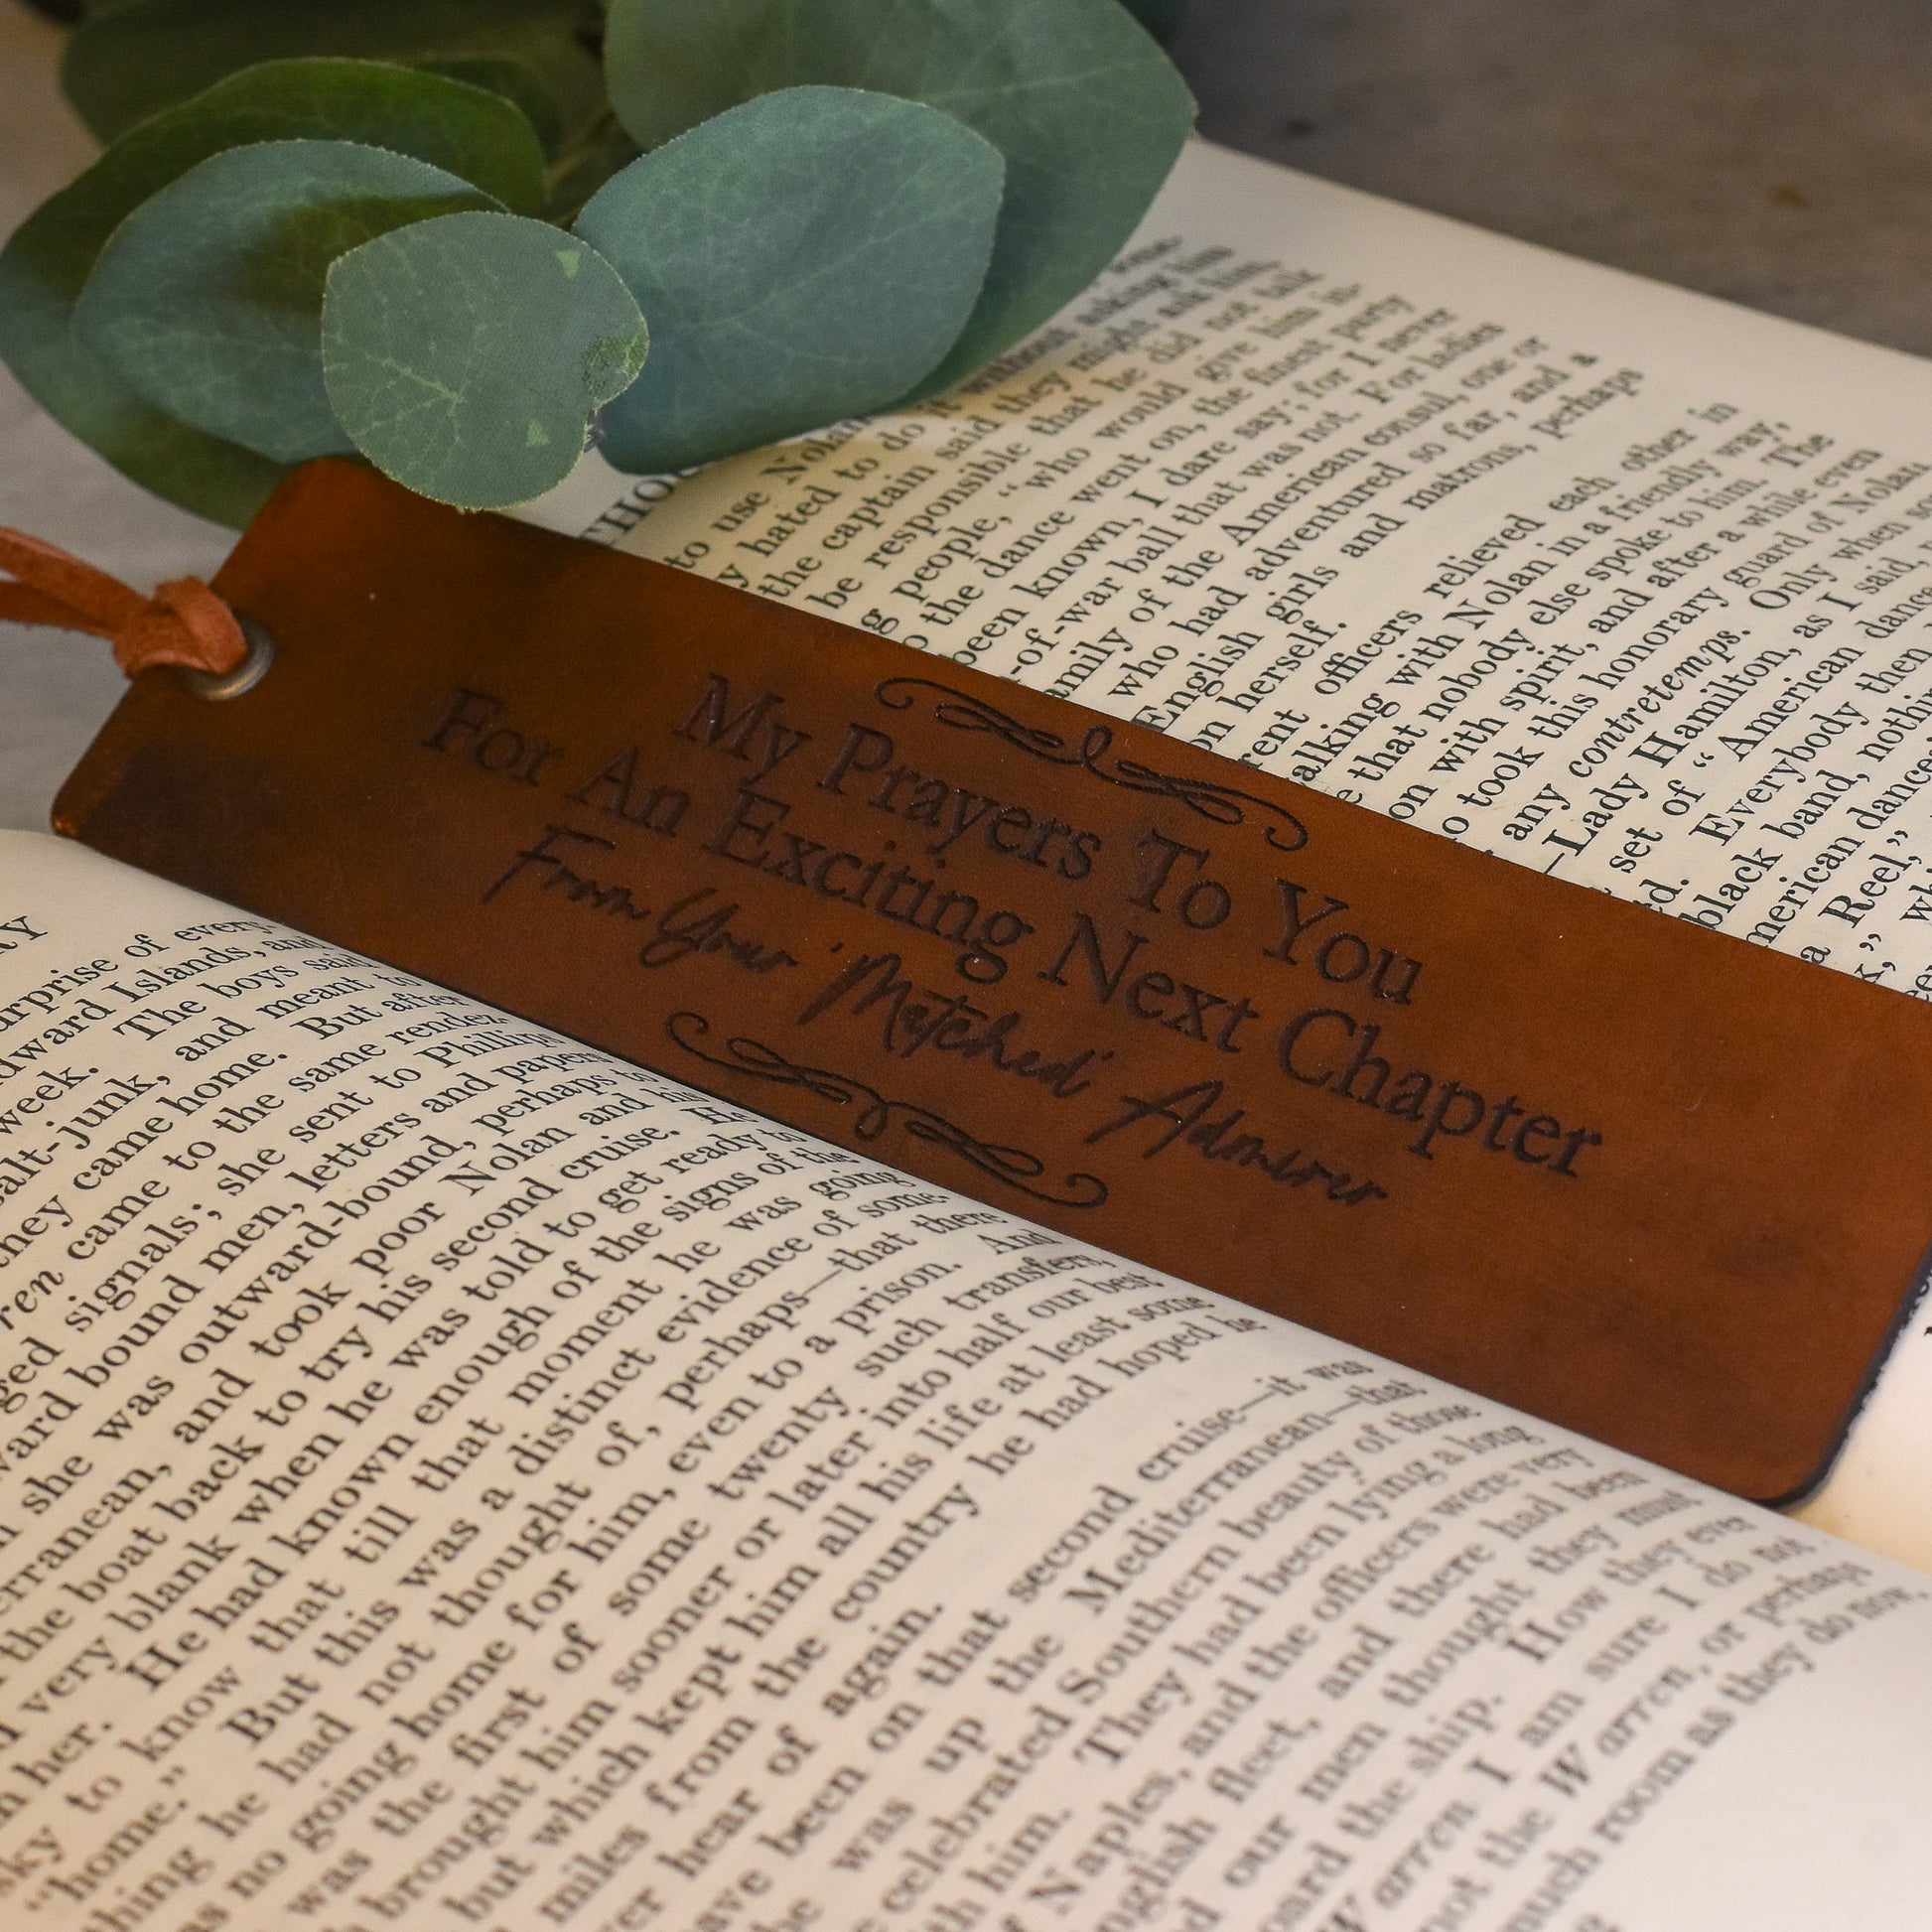 My Prayers To You
For An Exciting Next Chapter
From Your 'Matched' Admirer
without asking him
to use Nolan
hated to do it
they might ask him,
the captain said
that he did not talk
be responsible
people, "who would give him in-
the dance went on, the finest party
been known, I dare say; for I never
-of-war ball that was not. For ladies
family of the American consul, one or
who had adventured so far, and a
English girls and matrons, perhaps
on herself.
officers relieved each other in
alking with Nolan in a friendly way,
that nobody else spoke to him. The
on with spirit, and after a while even
took this honorary guard of Nolan,
any contretemps. Only when
—Lady Hamilton, as I said,
set of "American dance
Everybody then
black band,
merican dance
a Reel,"
urprise of every-
dward Islands, and
week. The boys said
salt-junk, and meant to
they came home. But after
ren came to the same rendez
signals; she sent to Phillips
ward bound men, letters and papers
she was outward-bound, perhaps to
erranean, and took poor Nolan and his
the boat back to try his second cruise. He
very blank when he was told to get ready to
her. He had known enough of the signs of the
sky to know that till that moment he was going
"home." But this was a distinct evidence of some-
thing he had not thought of, perhaps—that there
was no going home for him, even to a prison. And
was the first of some twenty such transfers,
brought him sooner or later into half our best
but which kept him all his life at least some
miles from the country he had hoped he
er hear of again.
have been on that second cruise—it was
was up the Mediterranean—that
celebrated Southern beauty of those
with him. They had been lying a long
of Naples, and the officers were very
English fleet, and there had been
our men thought they must
board the ship. How they ever
Warren I am sure I do not
not the Warren, or perhaps
much room as they do now